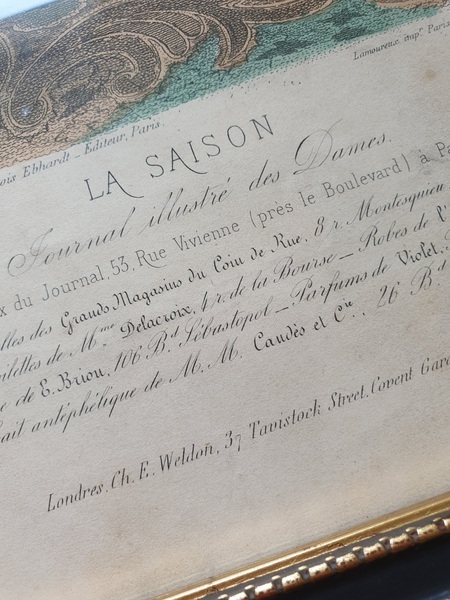 Lamoureux, impr Paris
ois Ebhardt _ Editeur, Paris.
LA SAISON
Journal illustré des Dames.
x du Journal, 53, Rue Vivienne (près le Boulevard) à Pa
lles des Grands Magasins du Coin de Rue, 8 r. Montesquieu
oilettes de Mme Delacroix, 4 r. de la Bourse _ Robes de l'
e de E. Briou, 106 Bd Sébastopol _ Parfums de Violet,
ait antéphélique de M. M. Candès et Cie, 26 Bd
Londres, Ch. E. Weldon, 37 Tavistock Street, Covent Gar